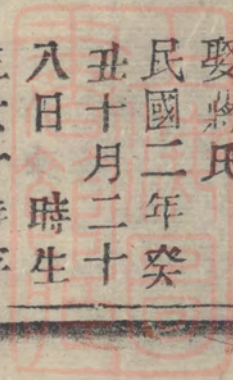 娶蔣氏
民國二年癸
丑十月二十
八日　時生